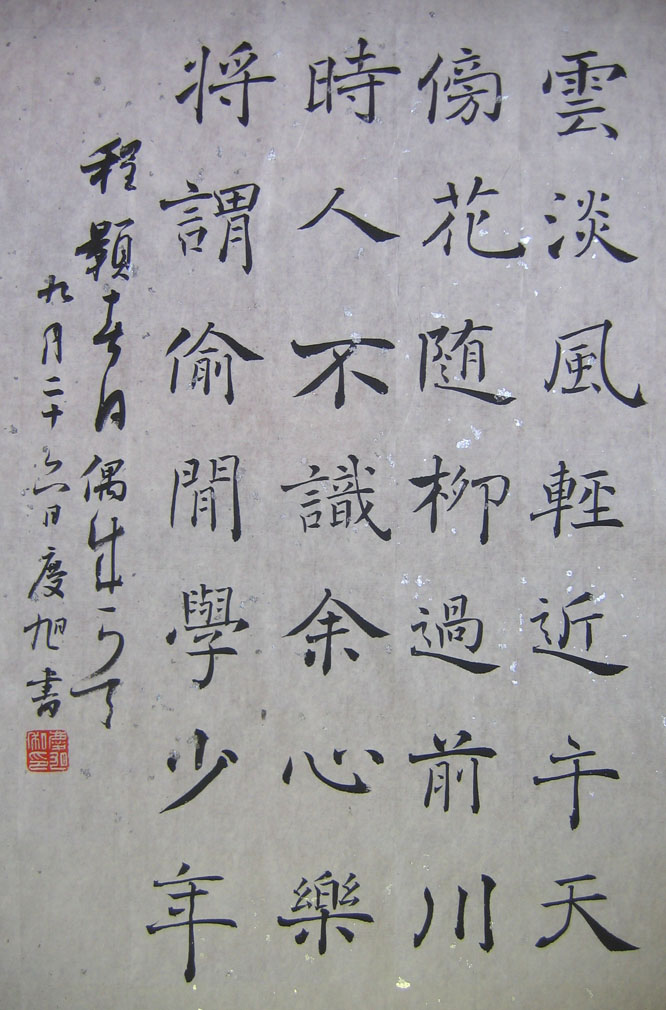 雲淡風輕近午天
傍花随柳過前川
時人不識余心樂
将謂偷閒學少年
程顥春日偶成一可下
九月二十六日慶旭書